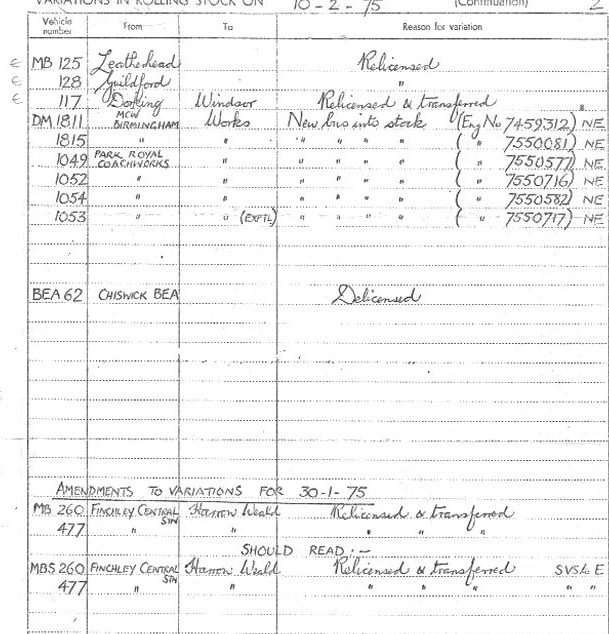 VARIATIONS IN ROLLING STOCK ON 10-2-75 (Continuation) 2
Vehicle number From To Reason for variation
E MB 125 Leatherhead Relicensed
E 128 Guildford "
E 117 Dorking Windsor Relicensed & transferred
DM 1811 MCW BIRMINGHAM Works New bus into stock (Eng No 7459312) NE
1815 " " " " " " ( " 7550081) NE
1049 PARK ROYAL COACHWORKS " " " " " ( " 7550577) NE
1052 " " " " " " ( " 7550716) NE
1054 " " " " " " ( " 7550582) NE
1053 " " (EXPTL) " " " " ( " 7550717) NE
BEA 62 CHISWICK BEA Delicensed
AMENDMENTS TO VARIATIONS FOR 30-1-75
MB 260 FINCHLEY CENTRAL STN Harrow Weald Relicensed & transferred
477 " " " " "
SHOULD READ :-
MBS 260 FINCHLEY CENTRAL STN Harrow Weald Relicensed & transferred SVSLs E
477 " " " " " " "